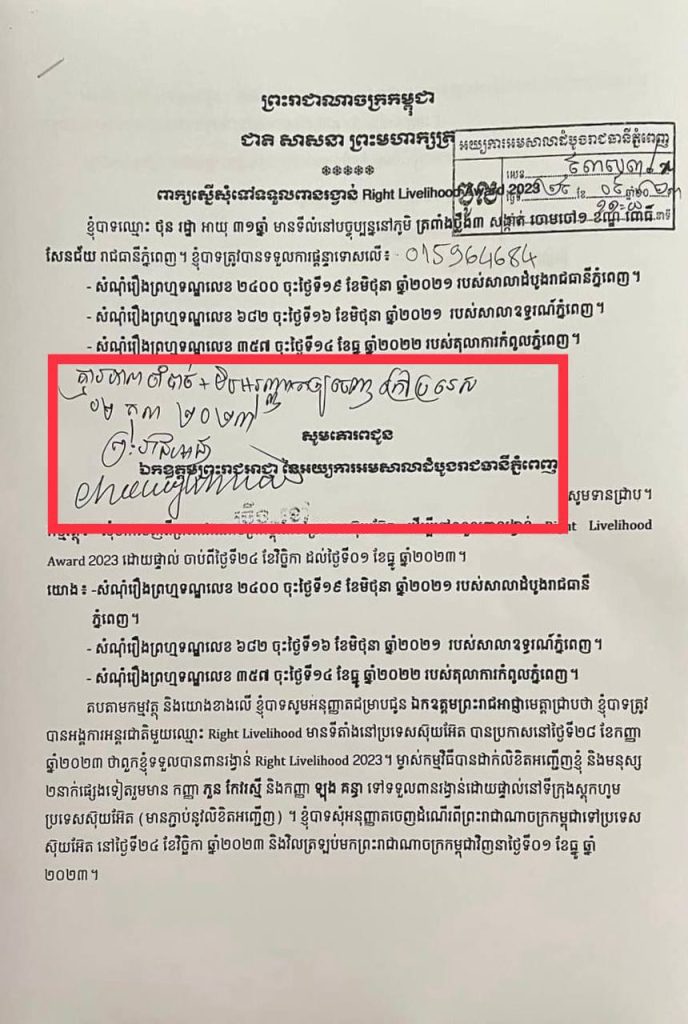 ព្រះរាជាណាចក្រកម្ពុជា
ជាតិ សាសនា ព្រះមហាក្សត្រ
អយ្យការអមសាលាដំបូងរាជធានីភ្នំពេញ
លេខ
ចូល
ថ្ងៃទី ២៤ ខែ ០៩ ឆ្នាំ២០២៣
ពាក្យស្នើសុំទៅទទួលពានរង្វាន់ Right Livelihood Award 2023
ខ្ញុំបាទឈ្មោះ ថុន រដ្ឋា អាយុ ៣១ឆ្នាំ មានទីលំនៅបច្ចុប្បន្ននៅភូមិ ត្រពាំងថ្លឹង៣ សង្កាត់ ចោមចៅ១ ខណ្ឌ ពោធិ៍
សែនជ័យ រាជធានីភ្នំពេញ។ ខ្ញុំបាទត្រូវបានទទួលការផ្តន្ទាទោសលើ៖ - 015964684
- សំណុំរឿងព្រហ្មទណ្ឌលេខ ២៤០០ ចុះថ្ងៃទី១៩ ខែមិថុនា ឆ្នាំ២០២១ របស់សាលាដំបូងរាជធានីភ្នំពេញ។
- សំណុំរឿងព្រហ្មទណ្ឌលេខ ៦៨២ ចុះថ្ងៃទី១៦ ខែមិថុនា ឆ្នាំ២០២១ របស់សាលាឧទ្ធរណ៍ភ្នំពេញ។
- សំណុំរឿងព្រហ្មទណ្ឌលេខ ៣៥៧ ចុះថ្ងៃទី១៤ ខែធ្នូ ឆ្នាំ២០២២ របស់តុលាការកំពូលភ្នំពេញ។
ចេញក្រៅប្រទេស
០២ តុលា ២០២៣
ព្រះរាជអាជ្ញា
សូមគោរពជូន
ឯកឧត្តមព្រះរាជអាជ្ញា នៃអយ្យការអមសាលាដំបូងរាជធានីភ្នំពេញ
សូមទានជ្រាប។
Right Livelihood
Award 2023 ដោយផ្ទាល់ ចាប់ពីថ្ងៃទី២៤ ខែវិច្ឆិកា ដល់ថ្ងៃទី០១ ខែធ្នូ ឆ្នាំ២០២៣។
យោង៖ -សំណុំរឿងព្រហ្មទណ្ឌលេខ ២៤០០ ចុះថ្ងៃទី១៩ ខែមិថុនា ឆ្នាំ២០២១ របស់សាលាដំបូងរាជធានី
ភ្នំពេញ។
- សំណុំរឿងព្រហ្មទណ្ឌលេខ ៦៨២ ចុះថ្ងៃទី១៦ ខែមិថុនា ឆ្នាំ២០២១ របស់សាលាឧទ្ធរណ៍ភ្នំពេញ។
- សំណុំរឿងព្រហ្មទណ្ឌលេខ ៣៥៧ ចុះថ្ងៃទី១៤ ខែធ្នូ ឆ្នាំ២០២២ របស់តុលាការកំពូលភ្នំពេញ។
តបតាមកម្មវត្ថុ និងយោងខាងលើ ខ្ញុំបាទសូមអនុញ្ញាតជម្រាបជូន ឯកឧត្តមព្រះរាជអាជ្ញាមេត្តាជ្រាបថា ខ្ញុំបាទត្រូវ
បានអង្គការអន្តរជាតិមួយឈ្មោះ Right Livelihood មានទីតាំងនៅប្រទេសស៊ុយអ៊ែត បានប្រកាសនៅថ្ងៃទី២៨ ខែកញ្ញា
ឆ្នាំ២០២៣ ថាពួកខ្ញុំទទួលបានពានរង្វាន់ Right Livelihood 2023។ ម្ចាស់កម្មវិធីបានដាក់លិខិតអញ្ជើញខ្ញុំ និងមនុស្ស
២នាក់ផ្សេងទៀតរួមមាន កញ្ញា ភួន កែវរស្មី និងកញ្ញា ឡុង គន្ធា ទៅទទួលពានរង្វាន់ដោយផ្ទាល់នៅទីក្រុងស្តុកហូម
ប្រទេសស៊ុយអ៊ែត (មានភ្ជាប់នូវលិខិតអញ្ជើញ) ។ ខ្ញុំបាទសុំអនុញ្ញាតចេញដំណើរពីព្រះរាជាណាចក្រកម្ពុជាទៅប្រទេស
ស៊ុយអ៊ែត នៅថ្ងៃទី២៤ ខែវិច្ឆិកា ឆ្នាំ២០២៣ និងវិលត្រឡប់មកព្រះរាជាណាចក្រកម្ពុជាវិញនាថ្ងៃទី០១ ខែធ្នូ ឆ្នាំ
២០២៣។